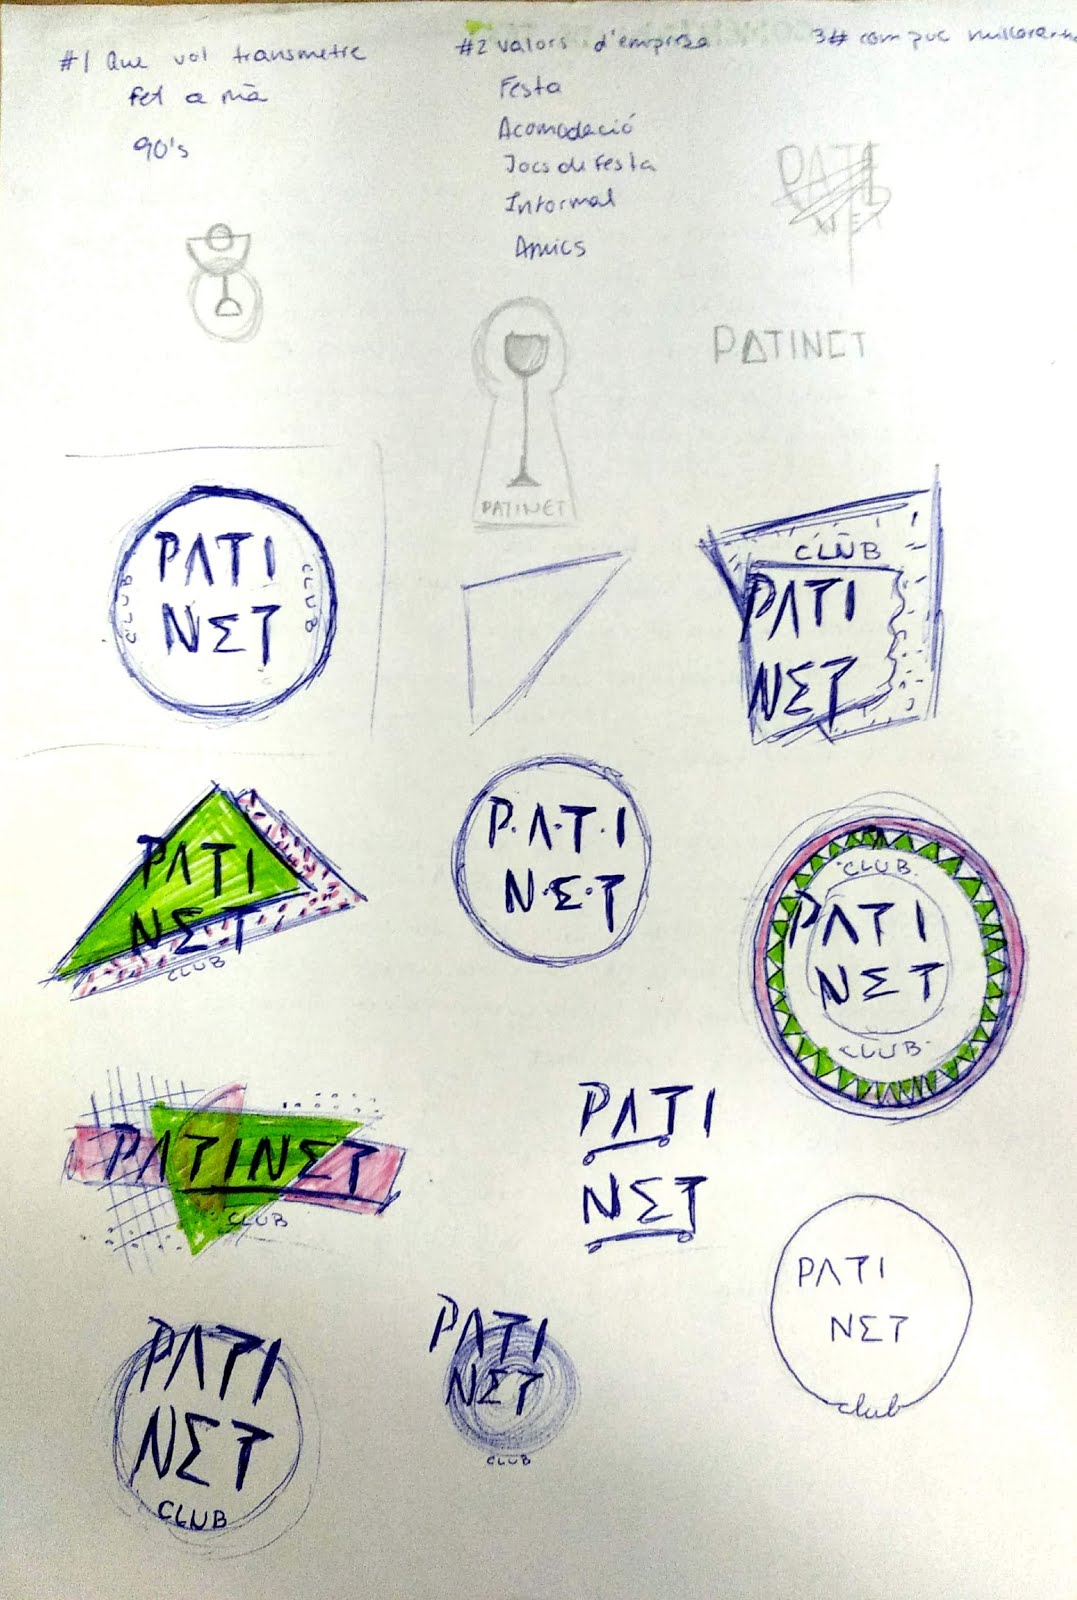 #1 Que vol transmetre
Fet a mà
90's
#2 Valors d'empresa
Festa
Acomodació
Jocs de Festa
Informal
Amics
3# com puc
PATI
NET
PATINET
PATINET
PATI
NET
CLUB
CLUB
CLUB
PATI
NΣT
PATI
NΣT
CLUB
P·A·T·I
N·E·T
CLUB
PATI
NΣT
CLUB
PATINΣT
CLUB
PATI
NΣT
PATI
NΣT
club
PATI
NΣT
CLUB
PATI
NΣT
CLUB